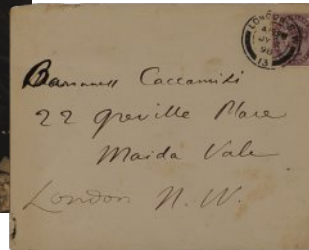 LONDON
JY
98
13
Baroness Caccamisi
22 Greville Place
Maida Vale
London N. W.